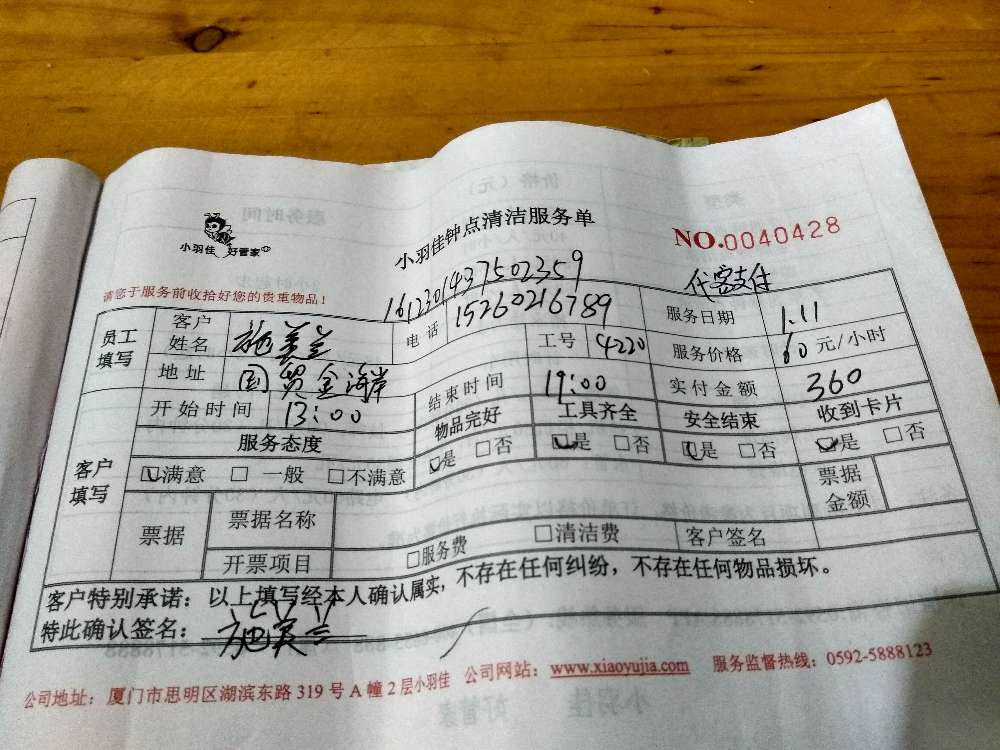 小羽佳 好管家
小羽佳钟点清洁服务单
NO.0040428
请您于服务前收拾好您的贵重物品！
1612301437502359
代客支付
员工填写 客户姓名 施美兰 电话 15260216789 服务日期 1.11
地址 国贸金海岸 工号 4220 服务价格 60元/小时
客户填写 开始时间 13:00 结束时间 19:00 实付金额 360
服务态度 物品完好 工具齐全 安全结束 收到卡片
☑满意 □一般 □不满意 ☑是 □否 ☑是 □否 ☑是 □否 ☑是 □否
票据 票据名称 票据金额
开票项目 □服务费 □清洁费 客户签名
客户特别承诺：以上填写经本人确认属实，不存在任何纠纷，不存在任何物品损坏。
特此确认签名：施美兰
公司地址：厦门市思明区湖滨东路319号A幢2层小羽佳 公司网站：www.xiaoyujia.com 服务监督热线：0592-5888123